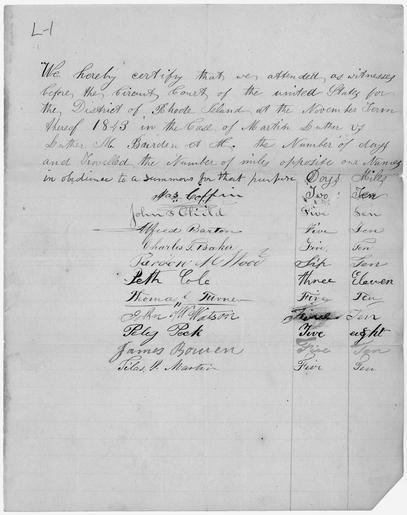 L-1
We hereby certify that we, attended, as witnesses
before the Circuit Court of the united States for
the District of Rhode Island at the November Term
thereof 1843 in the Case of Martin Luther vs
Luther M. Borden et al. the Number of days
and Travelled the Number of miles opposite our Names
in obedience to a summons for that purpose Days Miles
Coffin Two Ten
John S Child Five Ten
Alfred Barton Five Ten
Charles T. Baker Five Ten
Wood Six Ten
Seth Cole three Eleven
Thomas Turner Five Ten
John W Watson Ten
Peleg Peck Five eight
James Bowen Five Ten
Silas Martin Five Ten